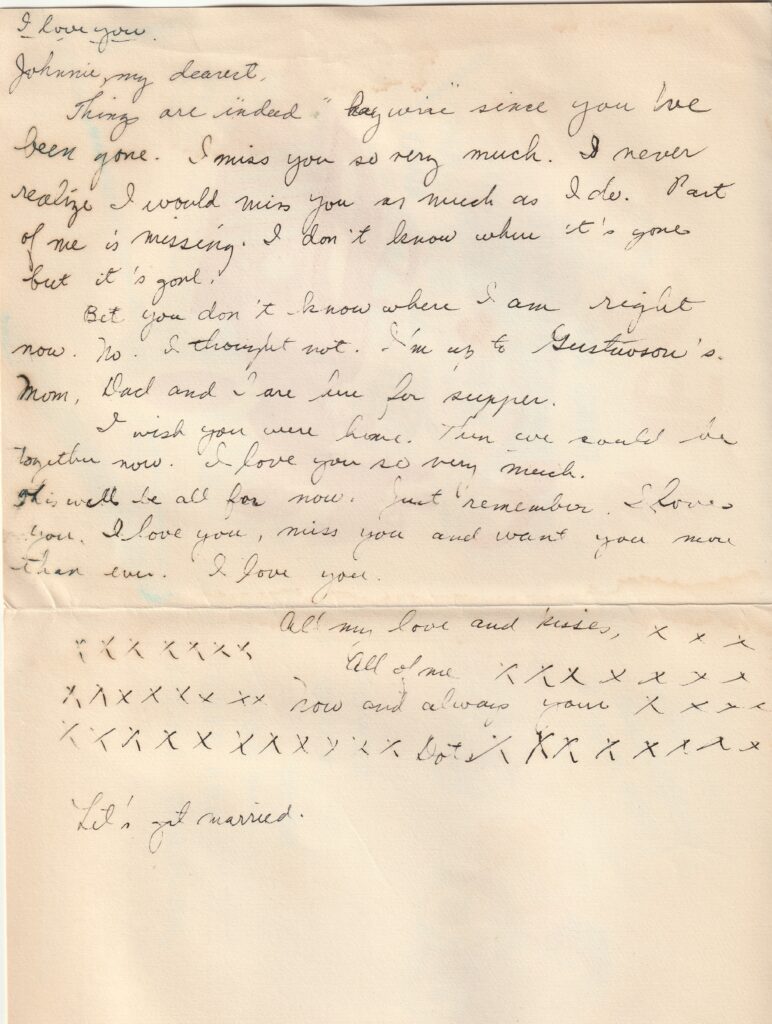 I love you.
Johnnie, my dearest,
Things are indeed "haywire" since you've
been gone. I miss you so very much. I never
realize I would miss you as much as I do. Part
of me is missing. I don't know where it's gone
but it's gone.
Bet you don't know where I am right
now. No. I thought not. I'm up to Gustavson's.
Mom, Dad and I are here for supper.
I wish you were home. Then we could be
together now. I love you so very much.
This will be all for now. Just remember I love
you. I love you, miss you and want you more
than ever. I love you.
All my love and kisses, x x x
x x x x x x x
All of me x x x x x x x
x x x x x x x x now and always your x x x x x
x x x x x x x x x x x x Dot x x x x x x x x x
Let's get married.